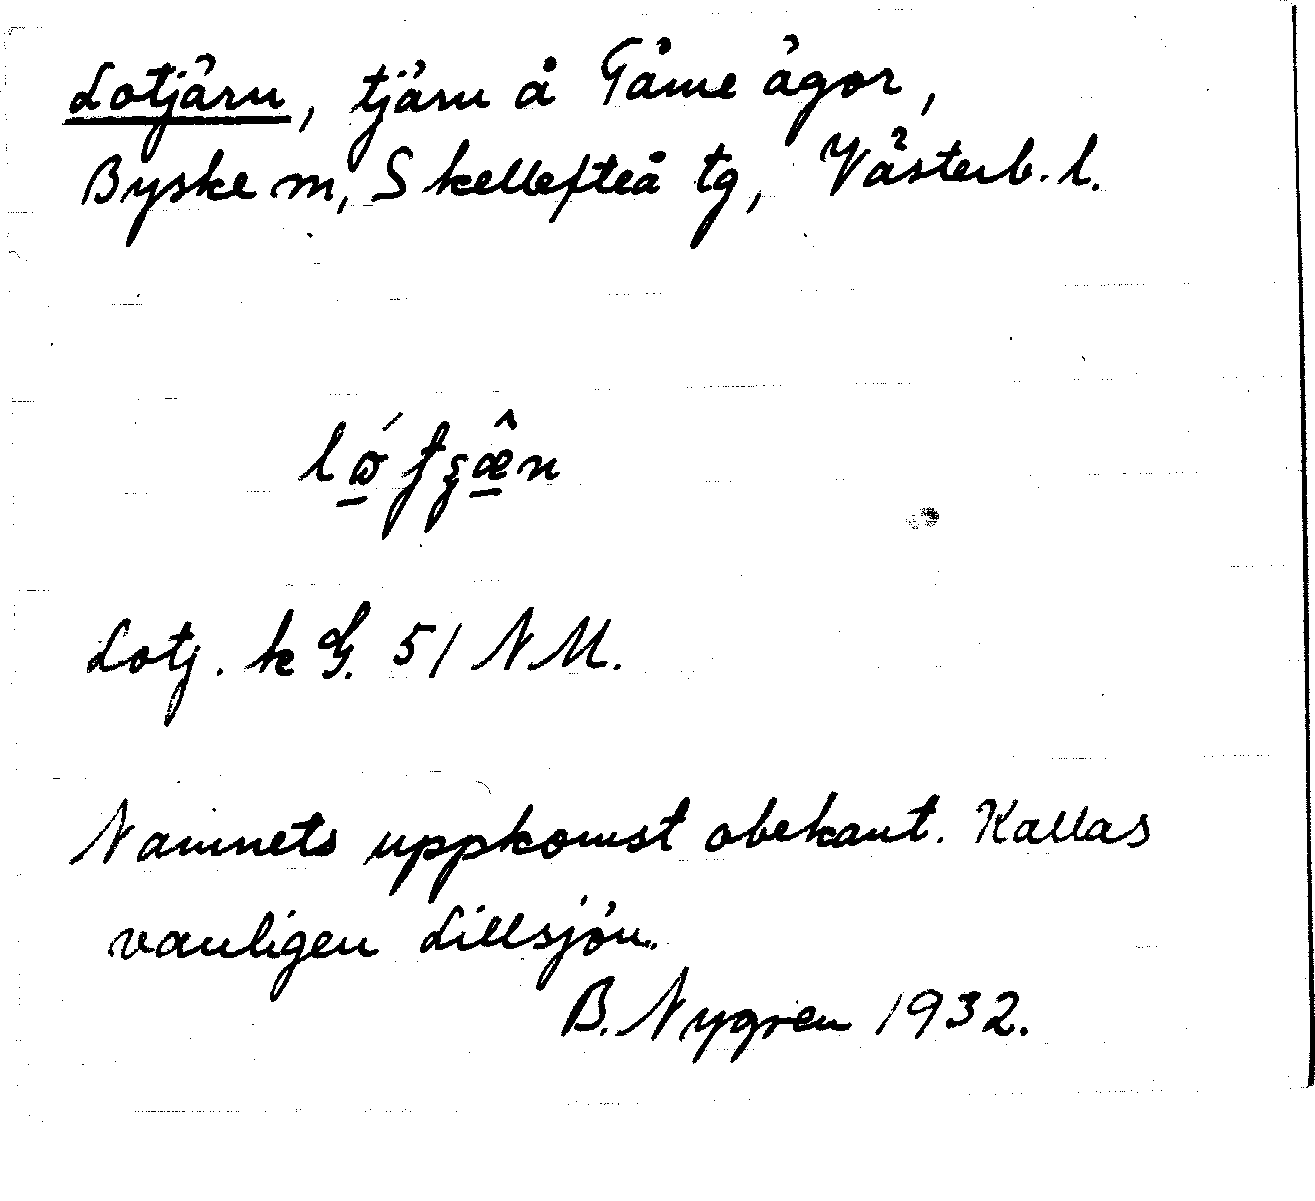 Lotjärn, tjärn å Tåme ägor,
Byske sn, Skellefteå tg, Västerb. l.
Lotj. k G. 51 NM.
Namnets uppkomst obekant. Kallas
vanligen Lillsjön.
B. Nygren 1932.